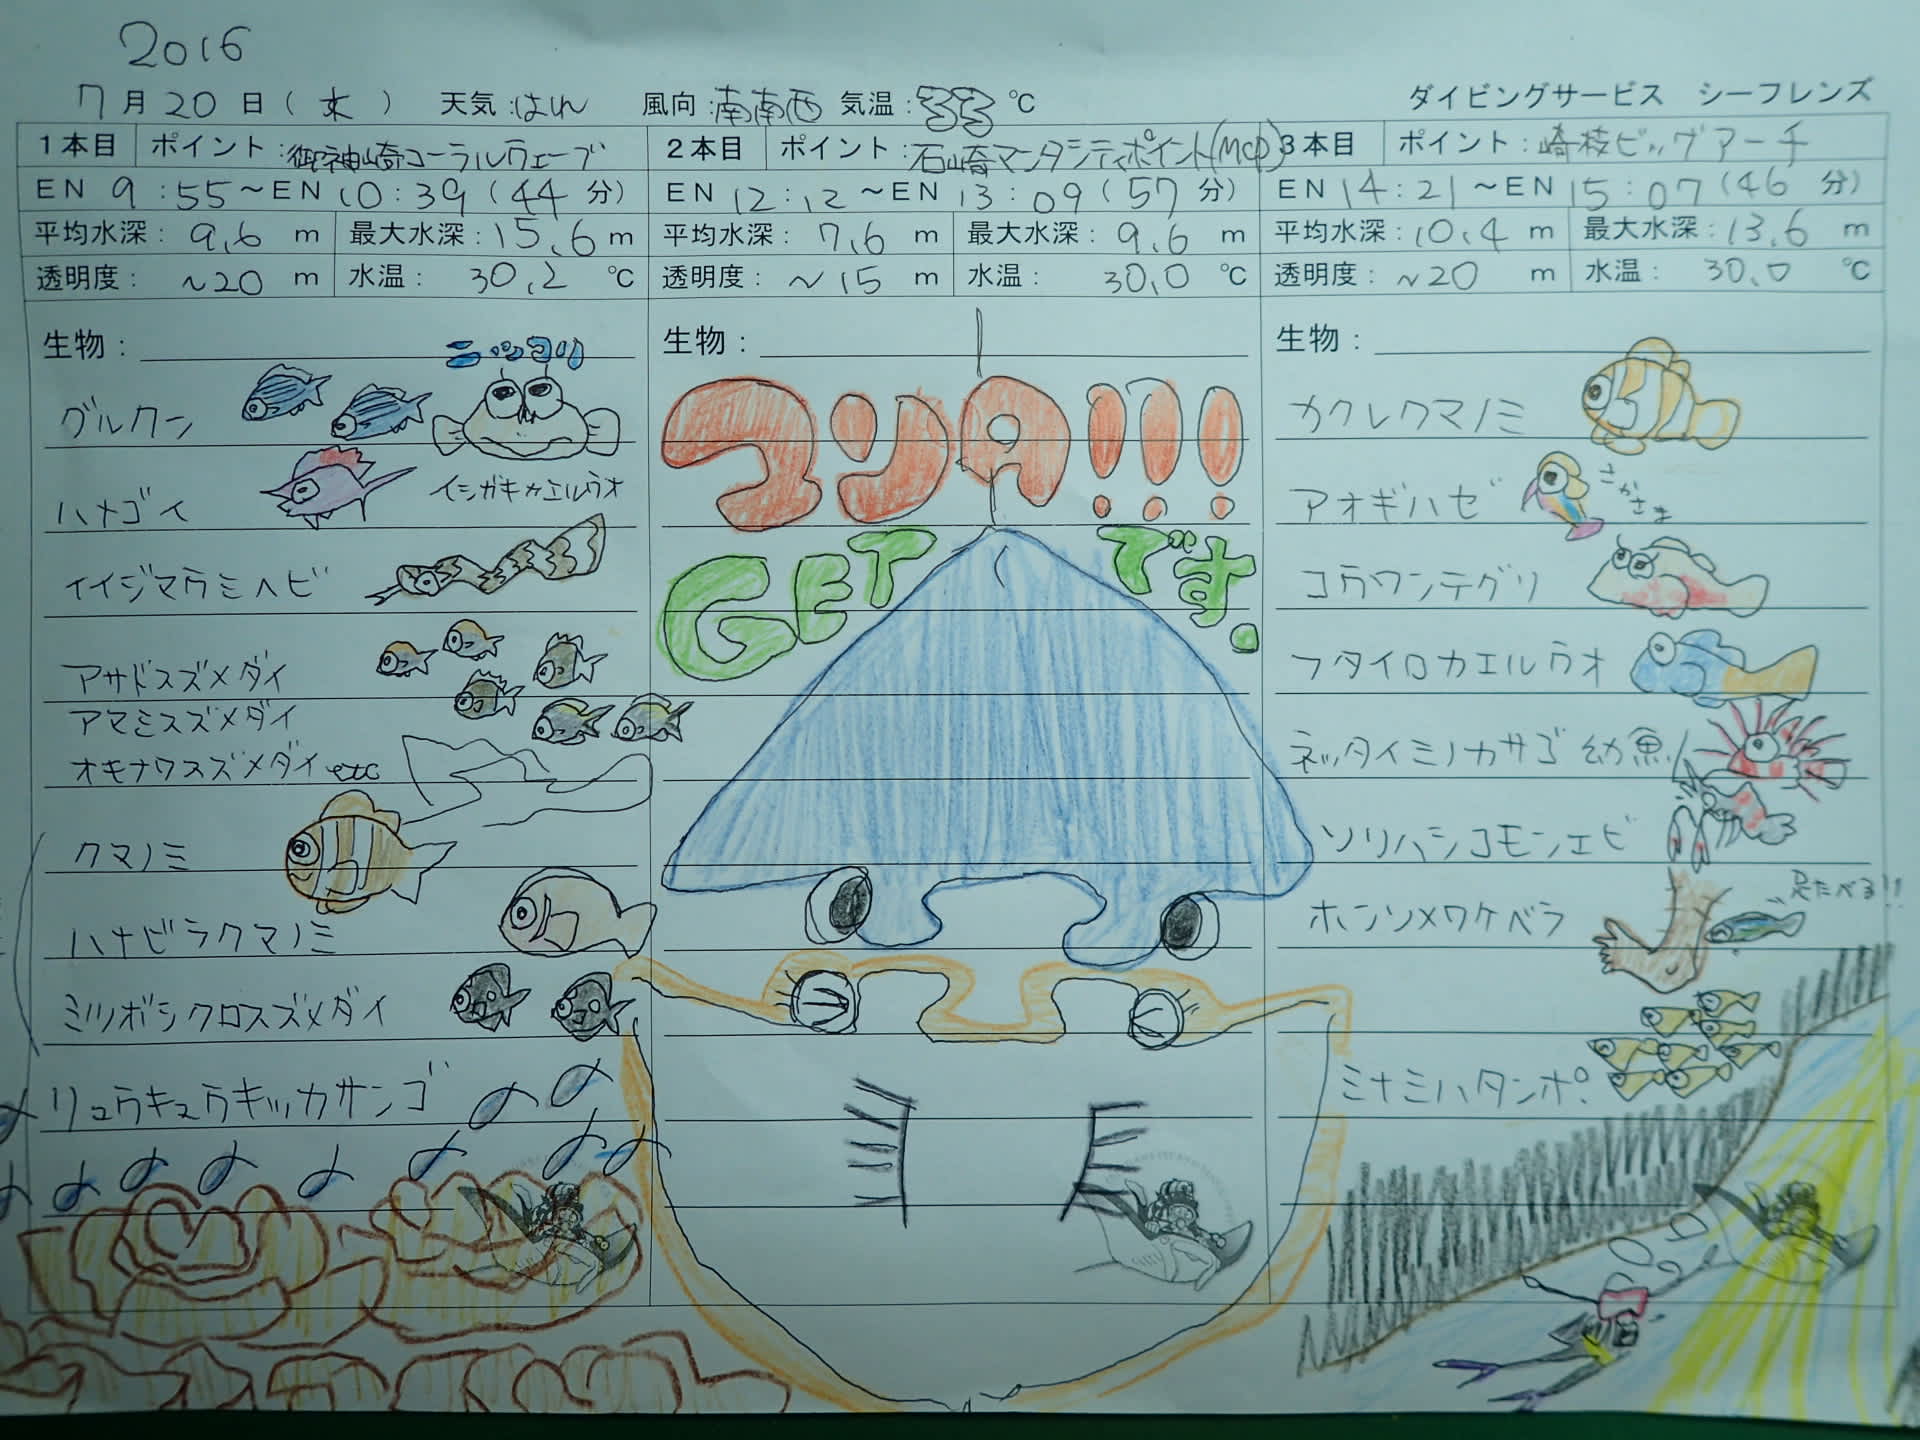 2016
7月20日(水) 天気:はれ 風向:南南西 気温:33℃ ダイビングサービス シーフレンズ
1本目 ポイント:御神崎コーラルウェーブ
EN 9:55~EN 10:39(44分)
平均水深:9.6m 最大水深:15.6m
透明度:~20m 水温:30.2℃
生物:
ニッコリ
グルクン
イシガキカエルウオ
ハナゴイ
イイジマウミヘビ
アサドスズメダイ
アマミスズメダイ
オキナワスズメダイ etc
クマノミ
ハナビラクマノミ
ミツボシクロスズメダイ
リュウキュウキッカサンゴ
2本目 ポイント:石崎マンタシティポイント(MCP)
EN 12:12~EN 13:09(57分)
平均水深:7.6m 最大水深:9.6m
透明度:~15m 水温:30.0℃
生物:
マンタ!!!
GETです.
3本目 ポイント:崎枝ビッグアーチ
EN 14:21~EN 15:07(46分)
平均水深:10.4m 最大水深:13.6m
透明度:~20m 水温:30.0℃
生物:
カクレクマノミ
アオギハゼ
さかさま
コウワンテグリ
フタイロカエルウオ
ネッタイミノカサゴ 幼魚
ソリハシコモンエビ
ホンソメワケベラ
足たべる!!
ミナミハタンポ